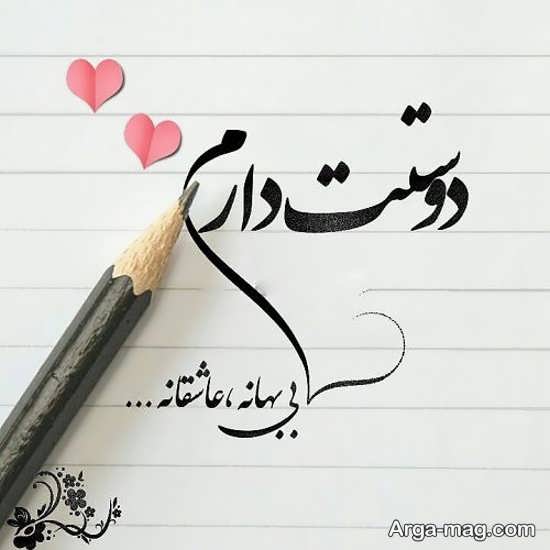 دوستت دارم
بی بهانه ، عاشقانه ...
Arga-mag.com